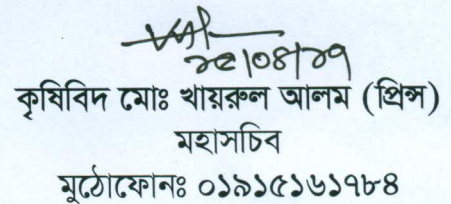 কৃষিবিদ মোঃ খায়রুল আলম (প্রিন্স)
মহাসচিব
মুঠোফোনঃ ০১৯১৫১৬১৭৮৪